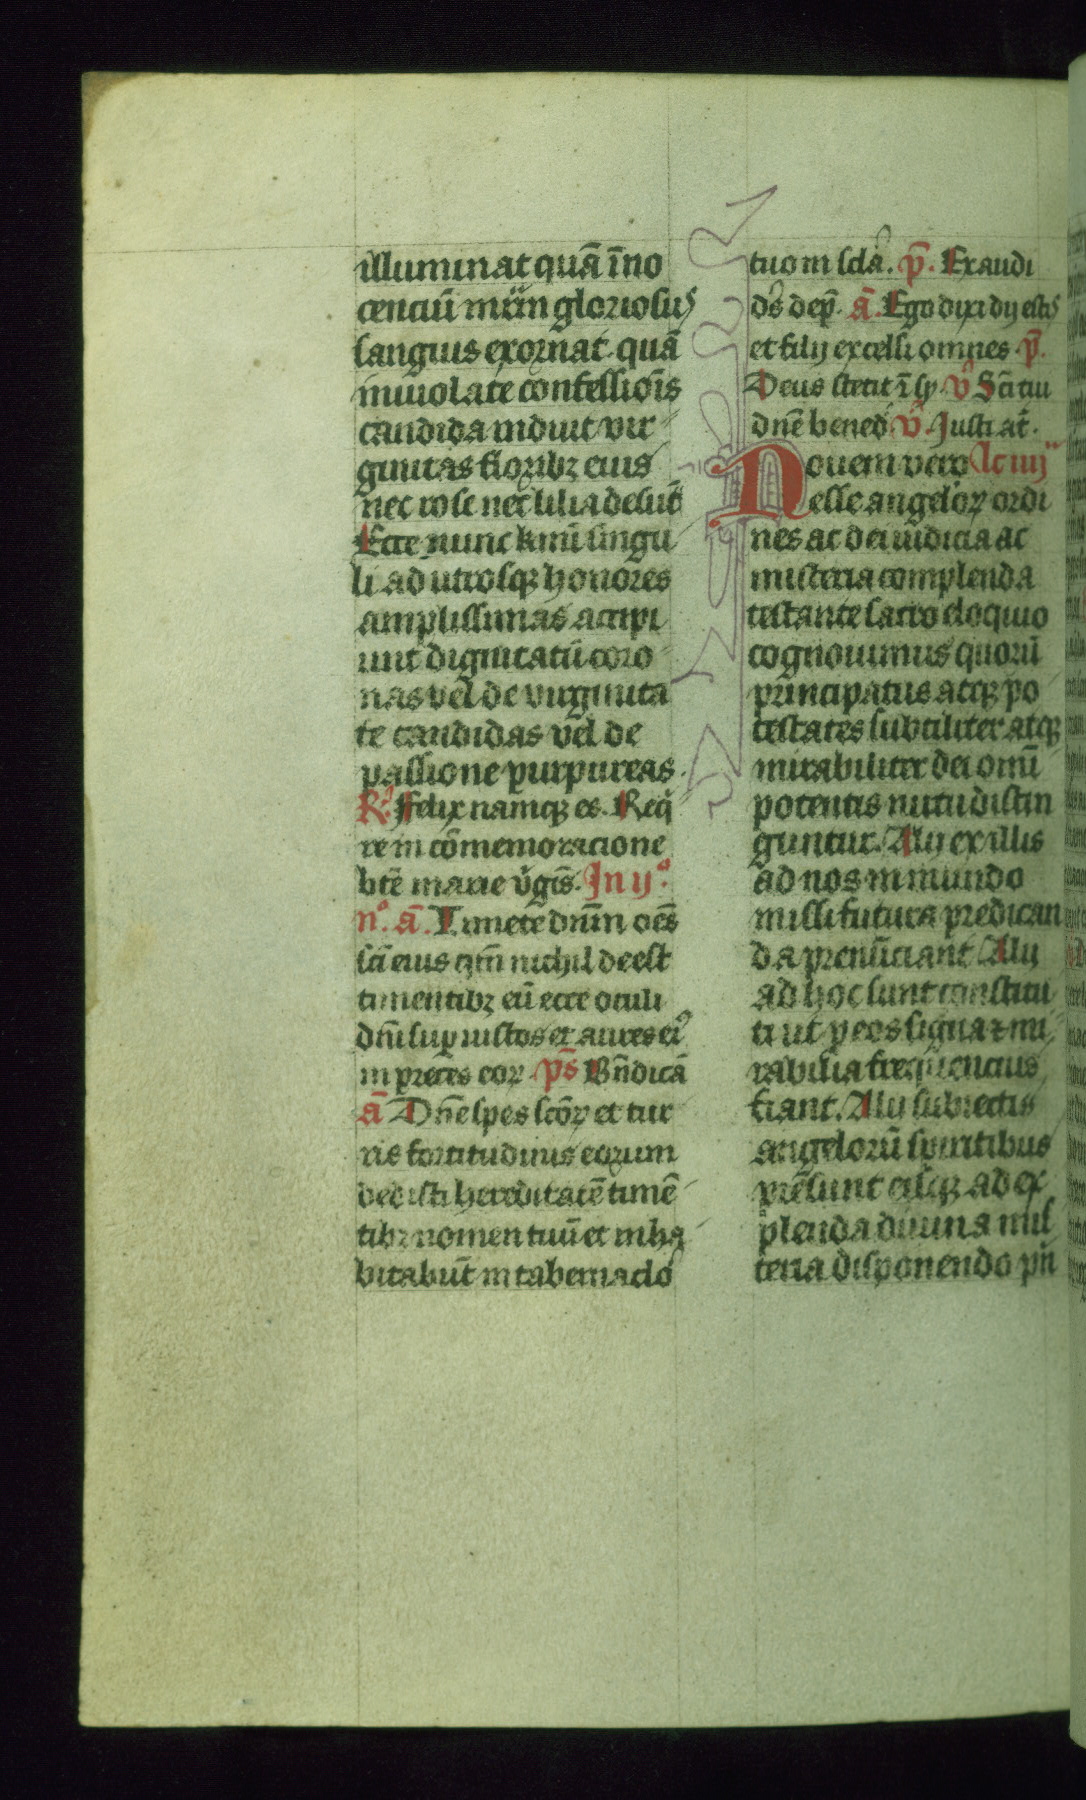 illuminat quā īno
cenciū mr̄ın gloriosus
sanguis exornat. quā
inuiolate confessiōis
candida induit vir
ginitas floribꝫ eius
nec rose nec lilia desūt
Ecce nunc kmi singu
li ad utrosqꝫ honores
amplissimas accipi
unt dignitatū coro
nas vel de virginita
te candidas vel de
passione purpureas.
R. Ffelix namqꝫ es. Req̄
re in cōmemoracione
bt̄e marie v̄gīs. In ijº.
nº. ā. Timete dnm̄ oēs
scī eius qm̄ nichil deest
timentibꝫ eū ecce oculi
dn̄i suꝑ iustos et aures eiꝰ
in preces eoꝝ. p̄s Bn̄dicā
ā Dn̄e spes scōꝝ et tur
ris fortitudinis eorum
dedisti hereditatē timē
tibꝫ nomen tuū et inha
bitabūt in tabernaclo
tuo in scl̄a. p̄. Exaudi
ds̄ dep̄. ā. Ego dixi dij estis
et filij excelsi omnes p̄.
Deus stetit ī sy. v̄ Scī tui
dn̄e bened̄ v̄. Iusti aūt.
Nouem vero lc iiij
esse angeloꝝ ordi
nes ac dei iudicia ac
misteria complenda
testante sacro eloquio
cognouimus quorū
principatus atqꝫ po
testates subtiliter atqꝫ
mirabiliter dei omni
potentis nutu distin
guntur. Alij ex illis
ad nos in mundo
missi futura predican
da prenūciant Alij
ad hoc sunt constitu
ti ut ꝑ eos signa ⁊ mi
rabilia frequencius
fiant. Alij subiectis
angelorū spiritibus
presunt eisqꝫ ad ex
plenda diuina mis
teria disponendo pn̄